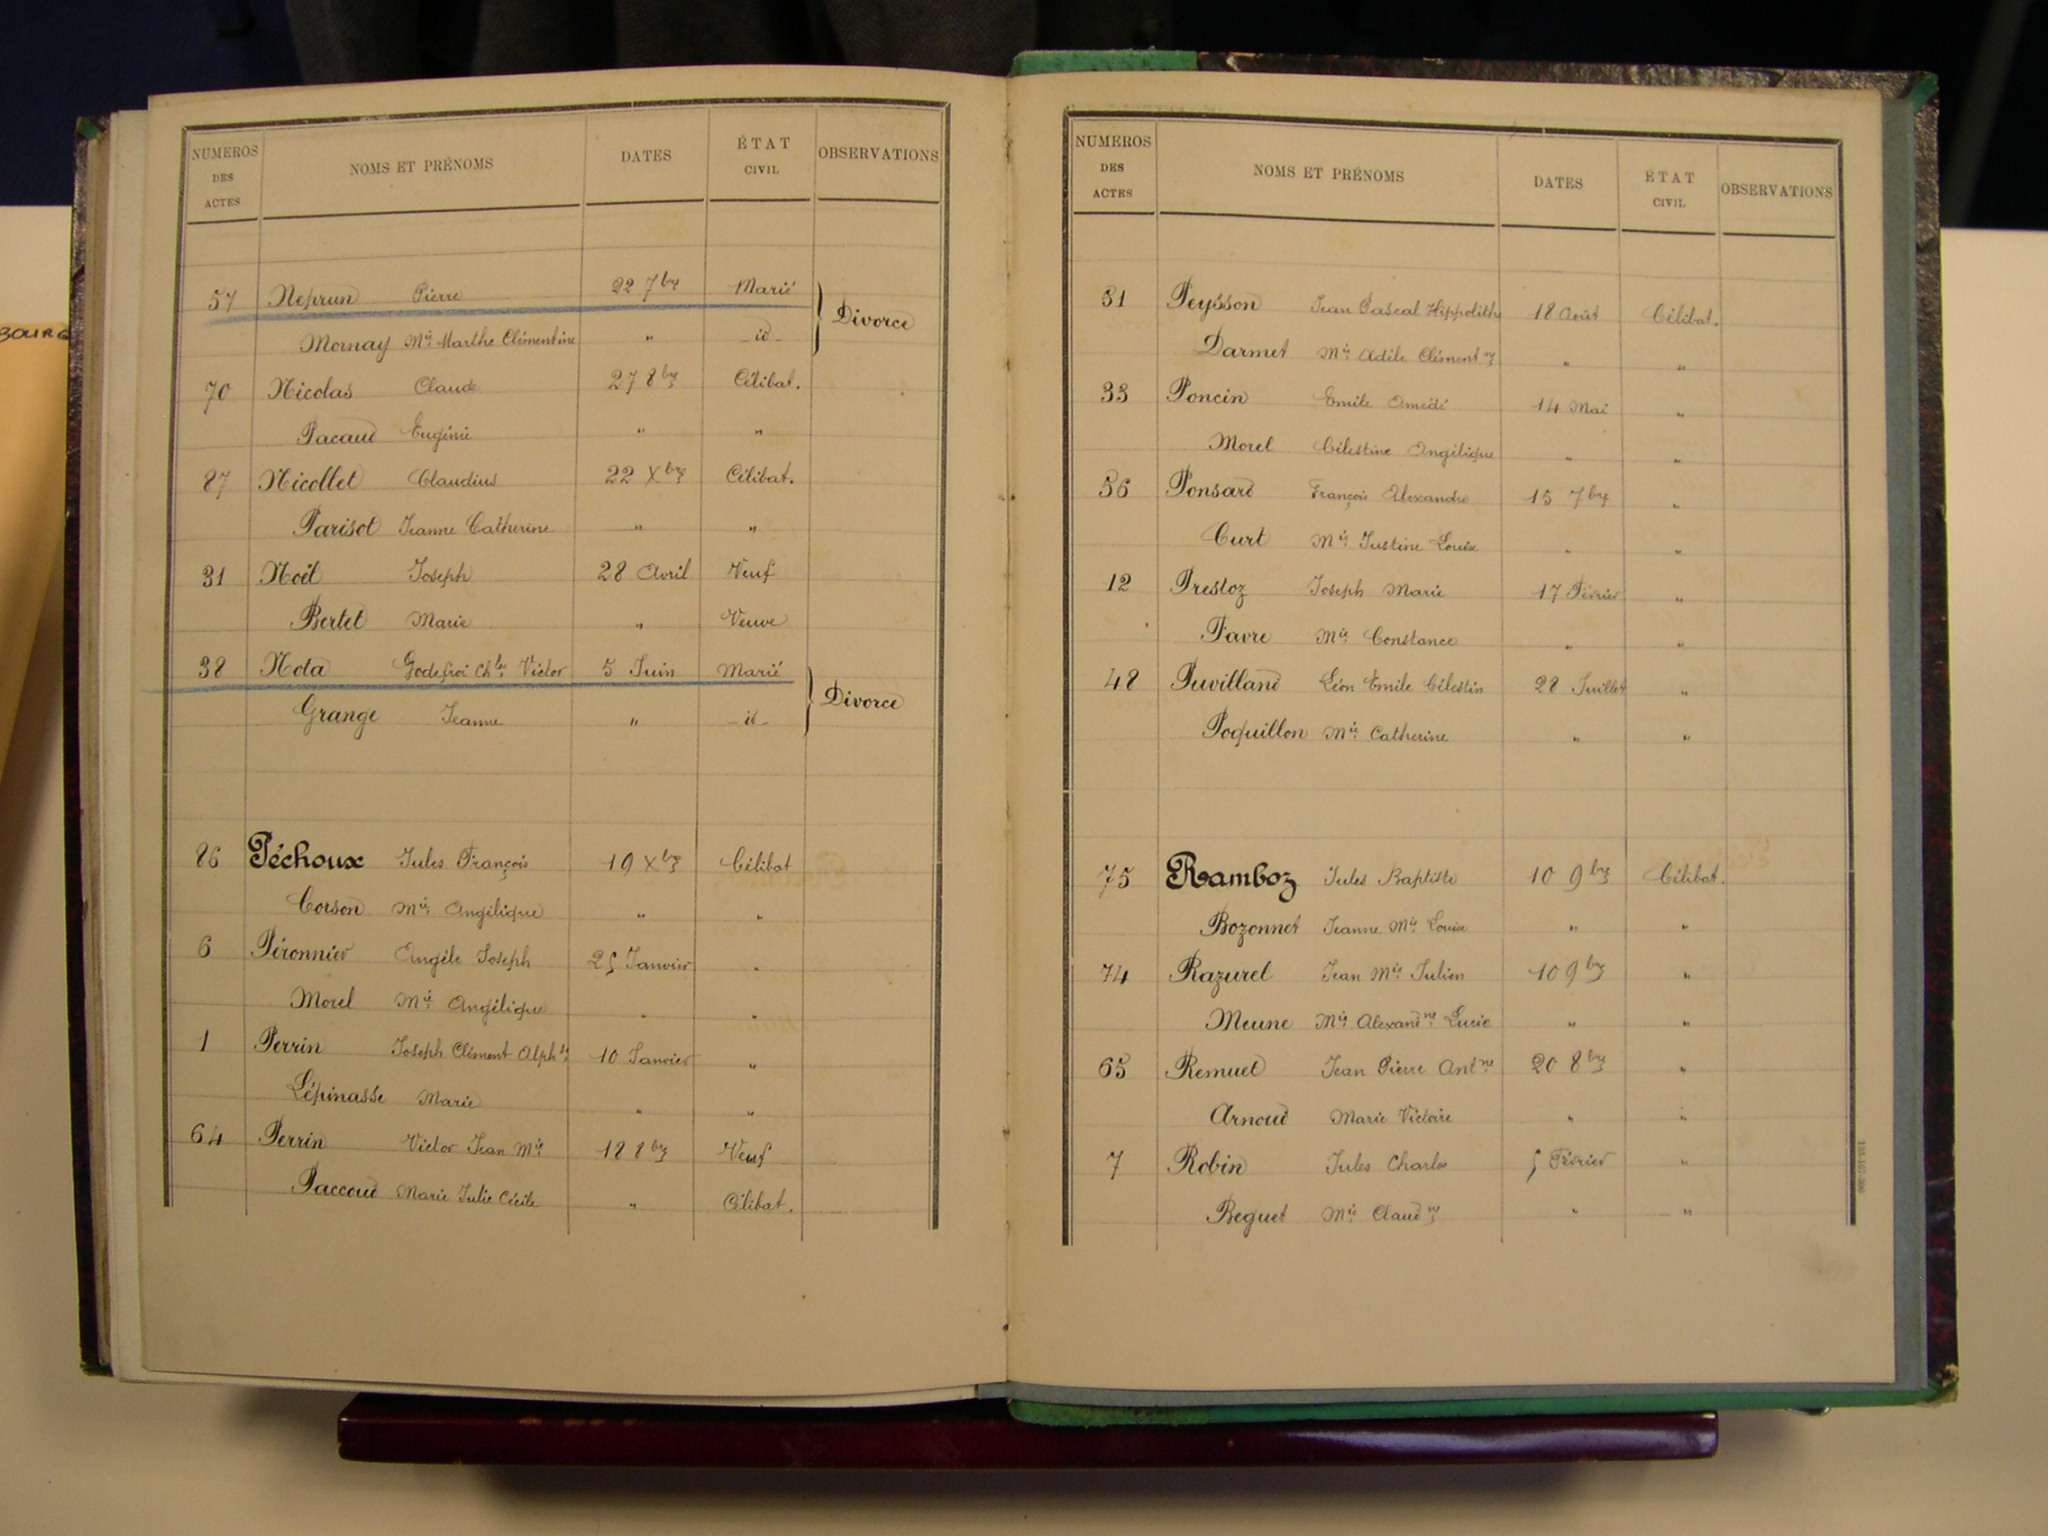 BOURG
NUMEROS DES ACTES NOMS ET PRÉNOMS DATES ÉTAT CIVIL OBSERVATIONS
57 Neprun Pierre 22 7bre Marié
Divorce
Mornay Mie Marthe Clémentine " id
70 Nicolas Claude 27 8bre Célibat.
Pacaud Eugénie " "
87 Nicollet Claudius 22 Xbre Célibat.
Parisot Jeanne Catherine " "
31 Noël Joseph 28 Avril Veuf
Bertet Marie " Veuve
38 Nota Godefroi Chles Victor 5 Juin Marié
Divorce
Grange Jeanne " id
86 Péchoux Jules François 19 Xbre Célibat
Corson Mie Angélique " "
6 Péronnier Angèle Joseph 25 Janvier "
Morel Mie Angélique " "
1 Perrin Joseph Clément Alphse 10 Janvier "
Lépinasse Marie " "
64 Perrin Victor Jean Mie 18 8bre Veuf
Paccoud Marie Julie Cécile " Célibat.
NUMEROS DES ACTES NOMS ET PRÉNOMS DATES ÉTAT CIVIL OBSERVATIONS
51 Peysson Jean Pascal Hippolithe 18 Août Célibat.
Darmet Mie Adèle Clémentne " "
33 Poncin Emile Amédé 14 Mai "
Morel Célestine Angélique " "
56 Ponsard François Alexandre 15 7bre "
Curt Mie Justine Louise " "
12 Prestoz Joseph Marie 17 Février "
Favre Mie Constance " "
48 Puvilland Léon Emile Célestin 28 Juillet "
Poquillon Mie Catherine " "
75 Ramboz Jules Baptiste 10 9bre Célibat.
Bozonnet Jeanne Mie Louise " "
74 Razurel Jean Mie Julien 10 9bre "
Meune Mie Alexandne Lucie " "
65 Remuet Jean Pierre Antne 20 8bre "
Arnoud Marie Victoire " "
7 Robin Jules Charles 5 Février "
Beguet Mie Claudne " "